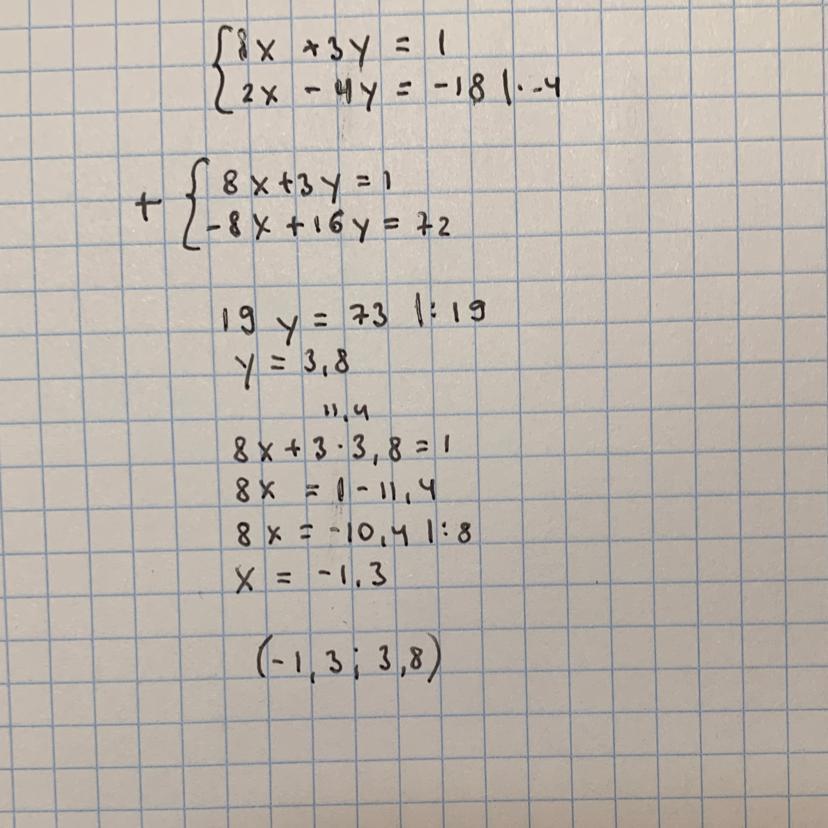 8x + 3y = 1
2x - 4y = -18 |· -4
+ 8x + 3y = 1
-8x + 16y = 72
19y = 73 |: 19
y = 3,8
11,4
8x + 3 · 3,8 = 1
8x = 1 - 11,4
8x = -10,4 |: 8
x = -1,3
(-1,3; 3,8)